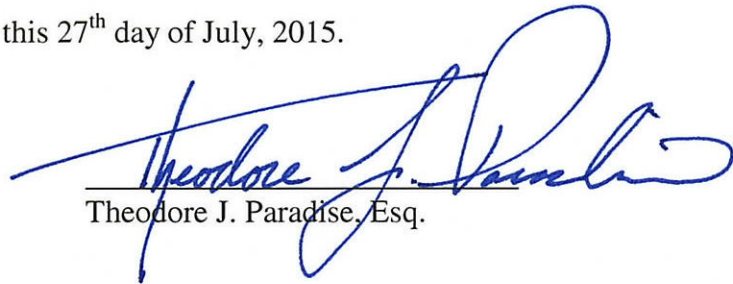 this 27th day of July, 2015.
Theodore J. Paradise
Theodore J. Paradise, Esq.